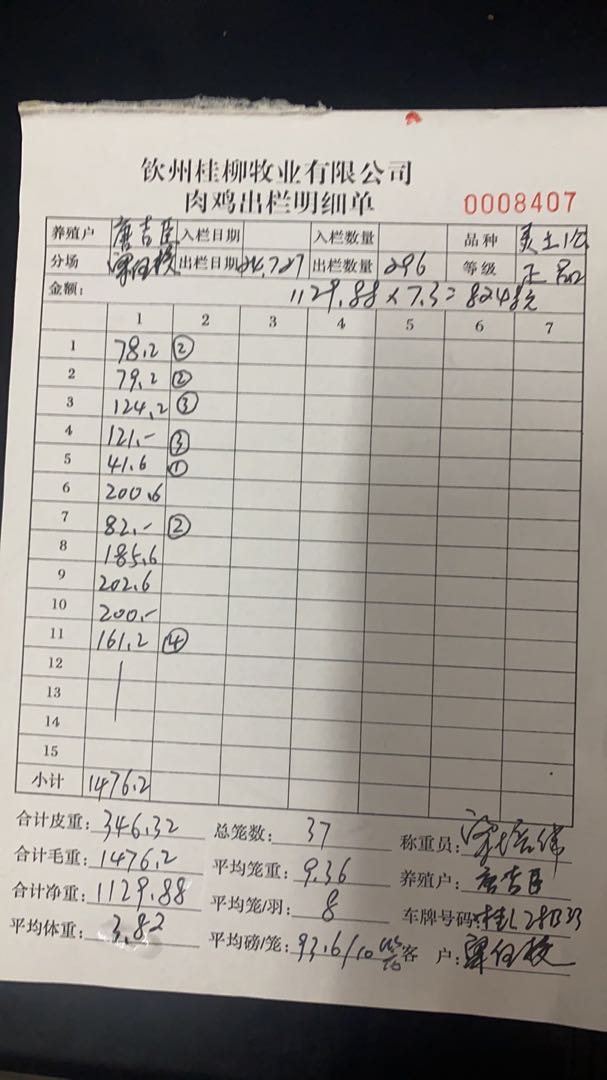 钦州桂柳牧业有限公司
肉鸡出栏明细单
0008407
养殖户 唐吉臣 入栏日期 入栏数量 品种
分场 出栏日期 24.7.27 出栏数量 296 等级 正品
金额: 1129.88×7.3=8248元
1 2 3 4 5 6 7
1 78.2 ②
2 79.2 ②
3 124.2 ③
4 121.- ③
5 41.6 ①
6 200.6
7 82.- ②
8 185.6
9 202.6
10 200.-
11 161.2 ④
12
13
14
15
小计 1476.2
合计皮重: 346.32 总笼数: 37 称重员:
合计毛重: 1476.2 平均笼重: 9.36 养殖户: 唐吉臣
合计净重: 1129.88 平均笼/羽: 8 车牌号码: 桂L28B33
平均体重: 3.82 平均磅/笼: 93.6/10 客 户: